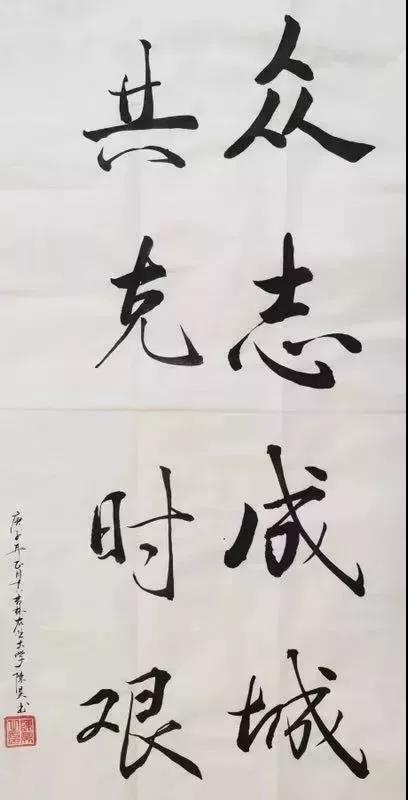 众志成城
共克时艰
庚子年正月吉林农业大学陈吴书